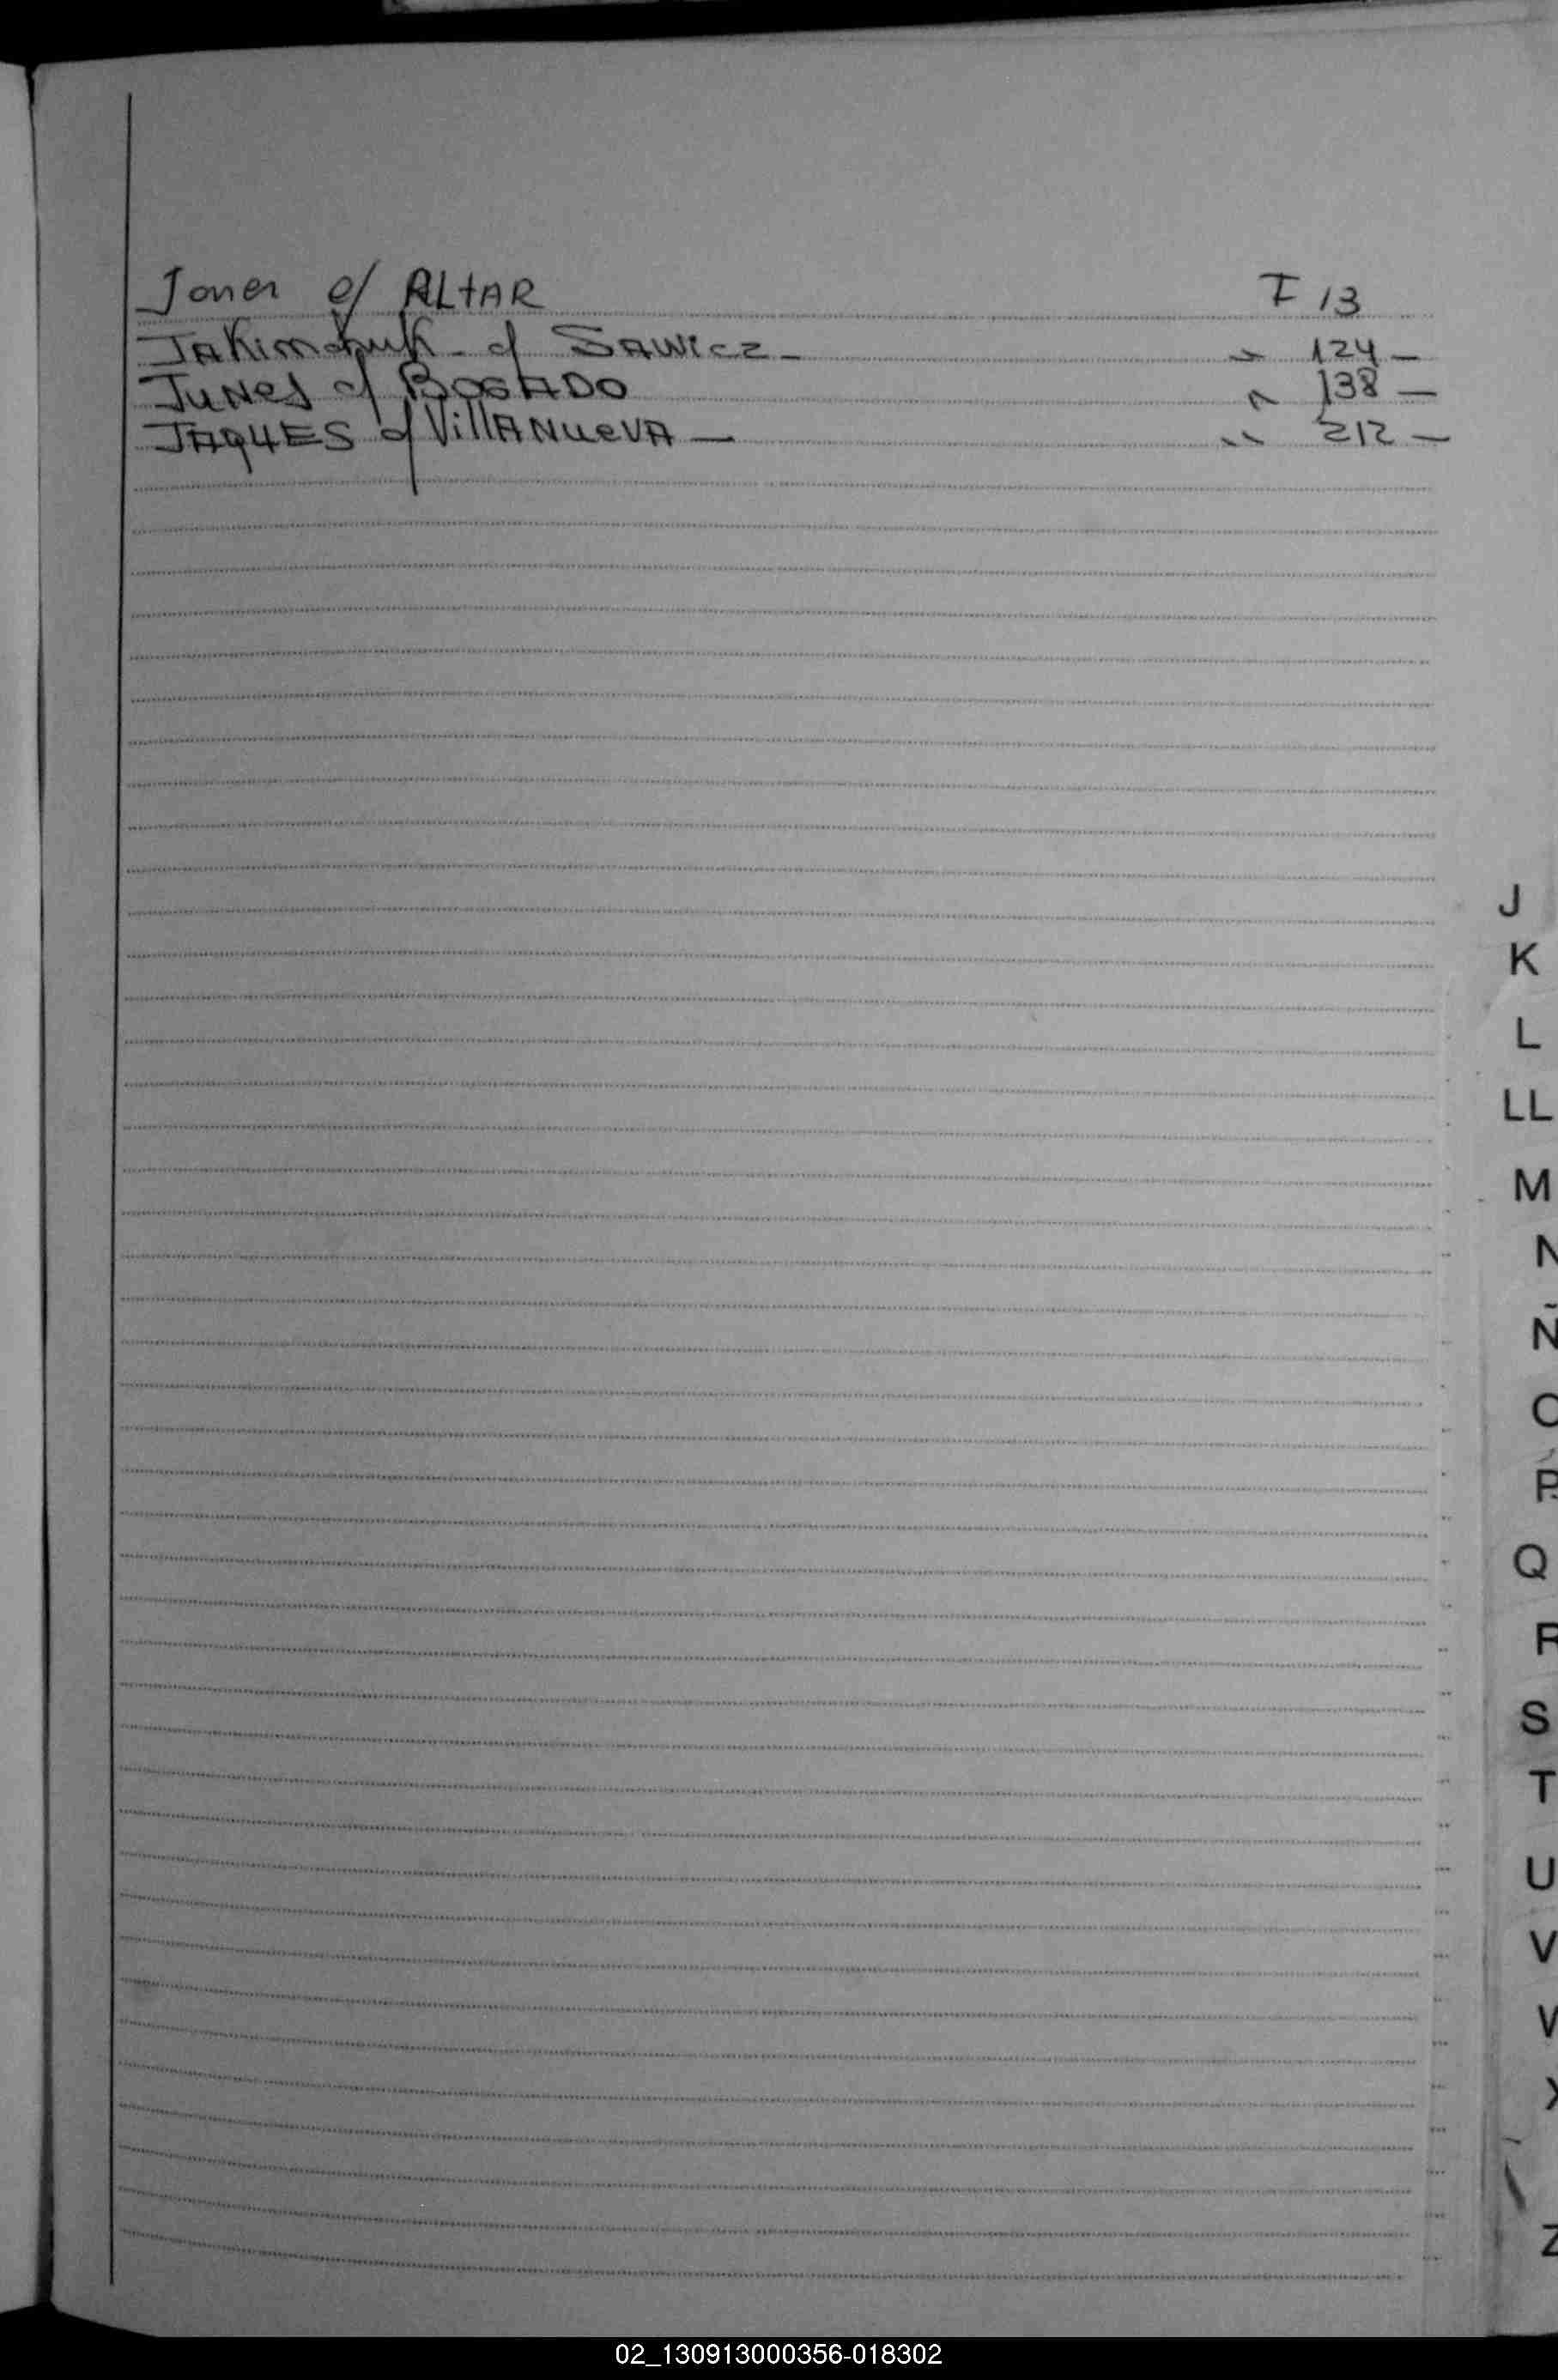 Jones c/ ALtAR I 13
JAKimchuk - c/ SAWICZ - " 124 -
JuNes c/ BOGADO " 138 -
JAQUES c/ VillANueVA - " 212 -
J
K
L
LL
M
N
Ñ
O
P
Q
R
S
T
U
V
X
Z
02_130913000356-018302